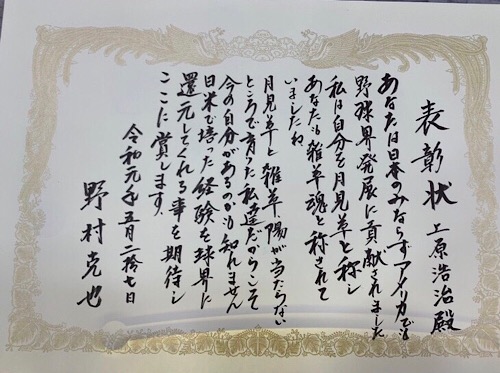 表彰状
上原浩治殿
あなたは日本のみならずアメリカでも
野球界発展に貢献されました
私は自分を月見草と称し
あなたも雑草魂と称されて
いましたね
月見草と雑草陽が当たらない
ところで育った私達だからこそ
今の自分があるのかも知れません
日米で培った経験を球界に
還元してくれる事を期待し
ここに賞します
令和元年五月二拾七日
野村克也